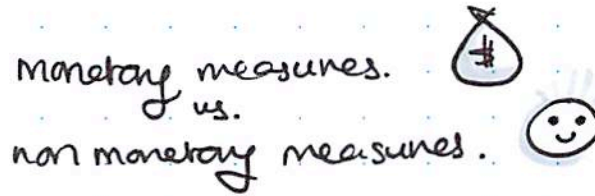 monetary measures.
vs.
non monetary measures.